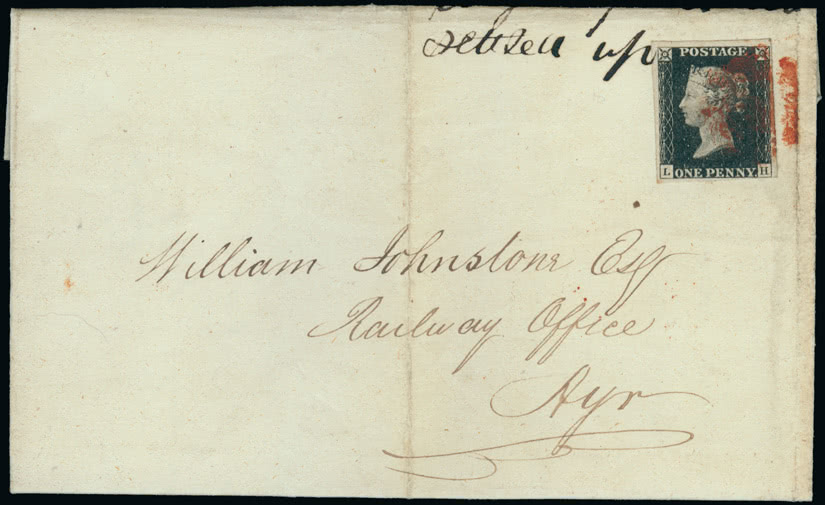 up
POSTAGE
L ONE PENNY H
William Johnstone Esq
Railway Office
Ayr